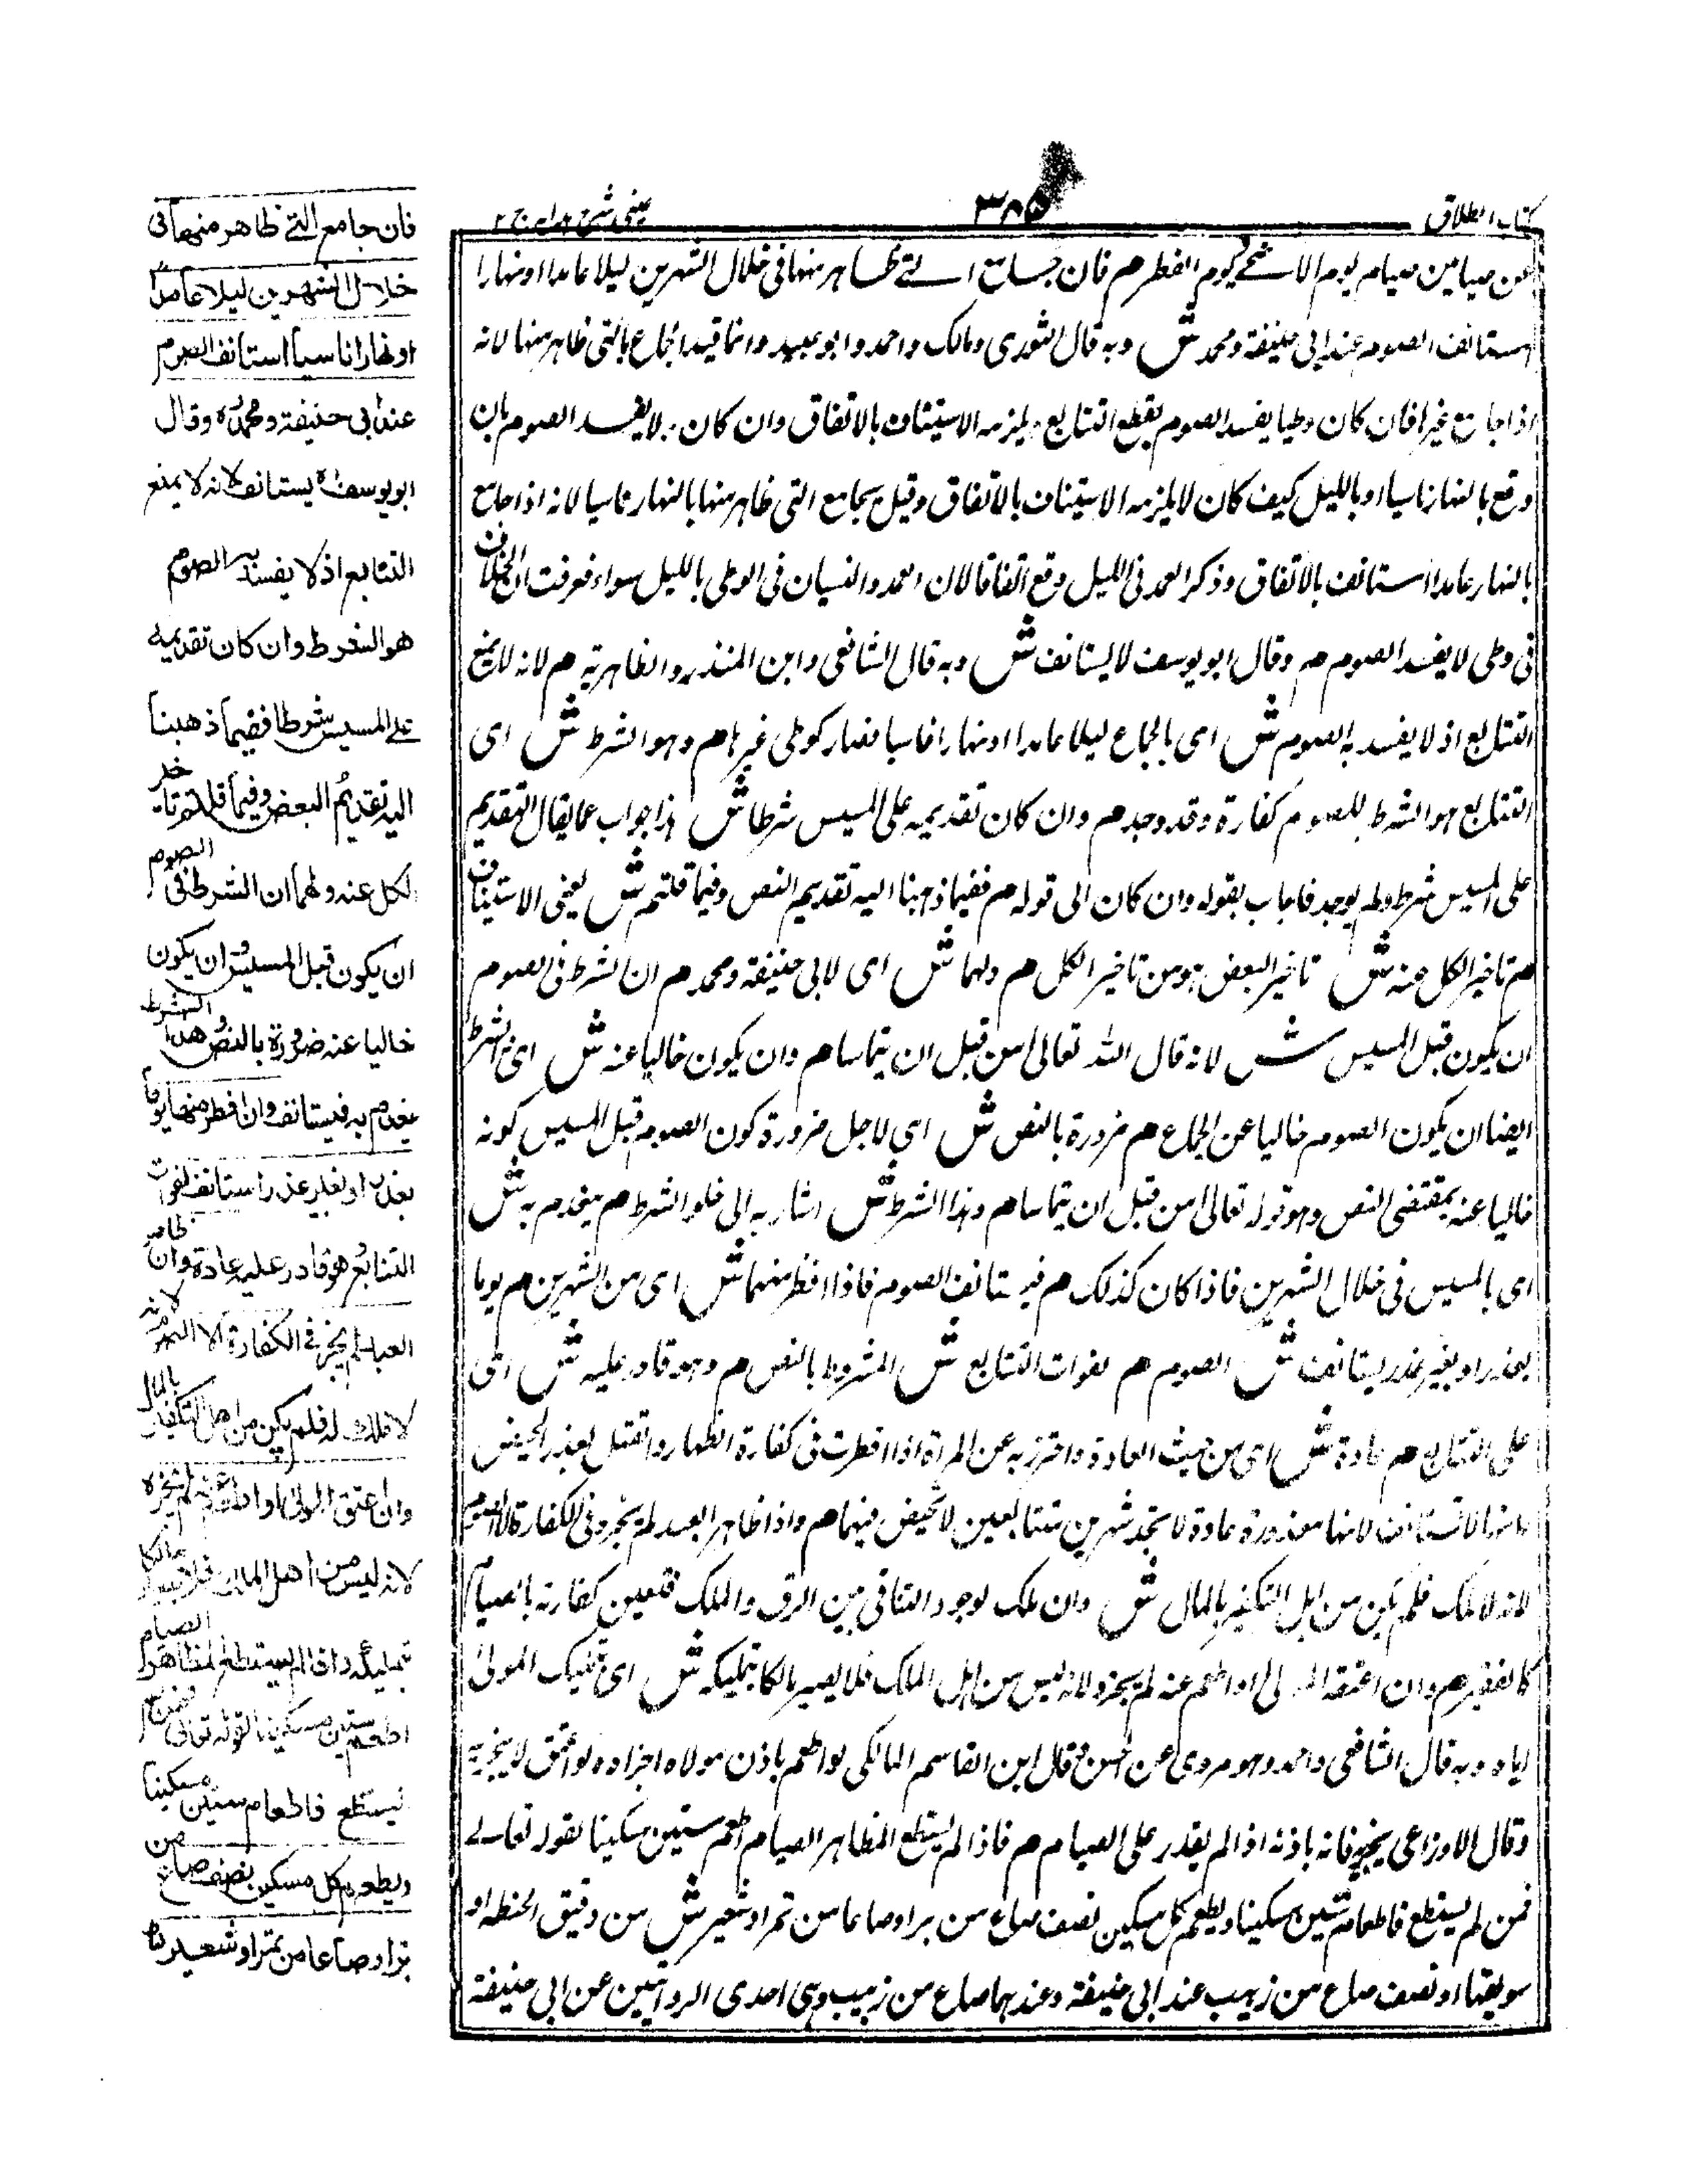 كتاب الطلاق
٣٨٥
عينى شرح هدايه ج ٢
عن صيامين صيام يوم الاضحى ويوم الفطر م فان جامع التے ظاهر منها فى خلال الشهرين ليلا عامدا او نهارا
استانف الصوم عند ابى حنيفة ومحمد ش وبه قال الثورى ومالك واحمد وابو عبيد وانما قيد الجماع بالتى ظاهر منها لانه
اذا جامع غيرها فان كان وطيا يفسد الصوم يقطع التتابع يلزمه الاستيناف بالاتفاق وان كان لا يفسد الصوم بان
وقع بالنهار ناسيا او بالليل كيف كان لا يلزمه الاستيناف بالاتفاق وقيل يجامع التى ظاهر منها بالنهار ناسيا لانه اذا جامع
بالنهار عامدا استانف بالاتفاق وذكر العمد فى الليل وقع اتفاقا لان العمد والنسيان فى الوطى بالليل سواء فعرفت ان الخلاف
فى وطى لا يفسد الصوم م وقال ابو يوسف لا يستانف ش وبه قال الشافعى وابن المنذر والظاهرية م لانه لا يمنع
التتابع اذ لا يفسد به الصوم ش اى بالجماع ليلا عامدا او نهارا ناسيا فصار كوطى غيرها م وهو الشرط ش اى
التتابع هو الشرط للصوم كفارة وقد وجد م وان كان تقديمه على المسيس شرطا ش هذا جواب عما يقال التقديم
على المسيس شرط ولم يوجد فاجاب بقوله وان كان الى قوله م ففيما ذهبنا اليه تقديم النص وفيما قلتم ش يعنى الاستيناف
م تاخير الكل عنه ش تاخير البعض اهون من تاخير الكل م ولهما ش اى لابى حنيفة ومحمد م ان الشرط فى الصوم
ان يكون قبل المسيس ش لانه قال الله تعالى من قبل ان يتماسا م وان يكون خاليا عنه ش اى الشرط
ايضا ان يكون الصوم خاليا عن الجماع م ضرورة بالنص ش اى لاجل ضرورة كون الصوم قبل المسيس كونه
خاليا عنه بمقتضى النص وهو قوله تعالى من قبل ان يتماسا م وهذا الشرط ش اشار به الى خلو الشرط م ينعدم به ش
اى بالمسيس فى خلال الشهرين فاذا كان كذلك م فيستانف الصوم فاذا افطر منهما ش اى من الشهرين م يوما
بعذر او بغير عذر يستانف ش الصوم م لفوات التتابع ش المشروط بالنص م وهو قادر عليه ش اى
على التتابع م عادة ش اى من حيث العادة واحترز به عن المراة اذا افطرت فى كفارة الظهار والقتل بعذر الحيض
لا تستانف لانها معذورة عادة لا تجد شهرين متتابعين لا تحيض فيهما م واذا ظاهر العبد لم يجز فى الكفارة الا الصوم
لانه لا ملك فلم يكن من اهل التكفير بالمال ش وان ملك لوجود التنافى بين الرق والملك فتعين كفارته بالصيام
كالفقير م وان اعتقه المولى او اطعم عنه لم يجزه لانه ليس من اهل الملك فلا يصير مالكا بتمليكه ش اى تمليك المولى
اياه وبه قال الشافعى واحمد وهو مروى عن الحسن وقال ابن القاسم المالكى لو اطعم باذن مولاه اجزاه ولو اعتق لا يجزيه
وقال الاوزاعى يجزيه فانه باذنه اذا لم يقدر على الصيام م فاذا لم يستطع المظاهر الصيام اطعم ستين مسكينا لقوله تعالے
فمن لم يستطع فاطعام ستين مسكينا ويطعم كل مسكين نصف صاع من بر او صاعا من تمر او شعير ش من دقيق الحنطة او
سويقها او نصف صاع من زبيب عند ابى حنيفة وعندهما صاع من زبيب وهى احدى الروايتين عن ابى حنيفة
فان جامع التے ظاهر منها فى
خلال الشهرين ليلا عامدا
او نهارا ناسيا استانف الصوم
عند ابى حنيفة ومحمد وقال
ابو يوسف لا يستانف لانه لا يمنع
التتابع اذ لا يفسد به الصوم
هو الشرط وان كان تقديمه
على المسيس شرطا ففيما ذهبنا
اليه تقديم البعض وفيما قلتم تاخير
الكل عنه ولهما ان الشرط فى الصوم
ان يكون قبل المسيس وان يكون
خاليا عنه ضرورة بالنص وهذا الشرط
ينعدم به فيستانف وان افطر منهما يوما
بعذر او بغير عذر استانف لفوات
التتابع وهو قادر عليه عادة وان ظاهر
العبد لم يجز فى الكفارة الا الصوم لانه
لا ملك له فلم يكن من اهل التكفير بالمال
وان اعتق المولى او اطعم عنه لم يجزه
لانه ليس من اهل الملك فلا يصير مالكا
بتمليكه واذا لم يستطع المظاهر الصيام
اطعم ستين مسكينا لقوله تعالى فمن لم
يستطع فاطعام ستين مسكينا
ويطعم كل مسكين نصف صاع من
بر او صاعا من تمر او شعير